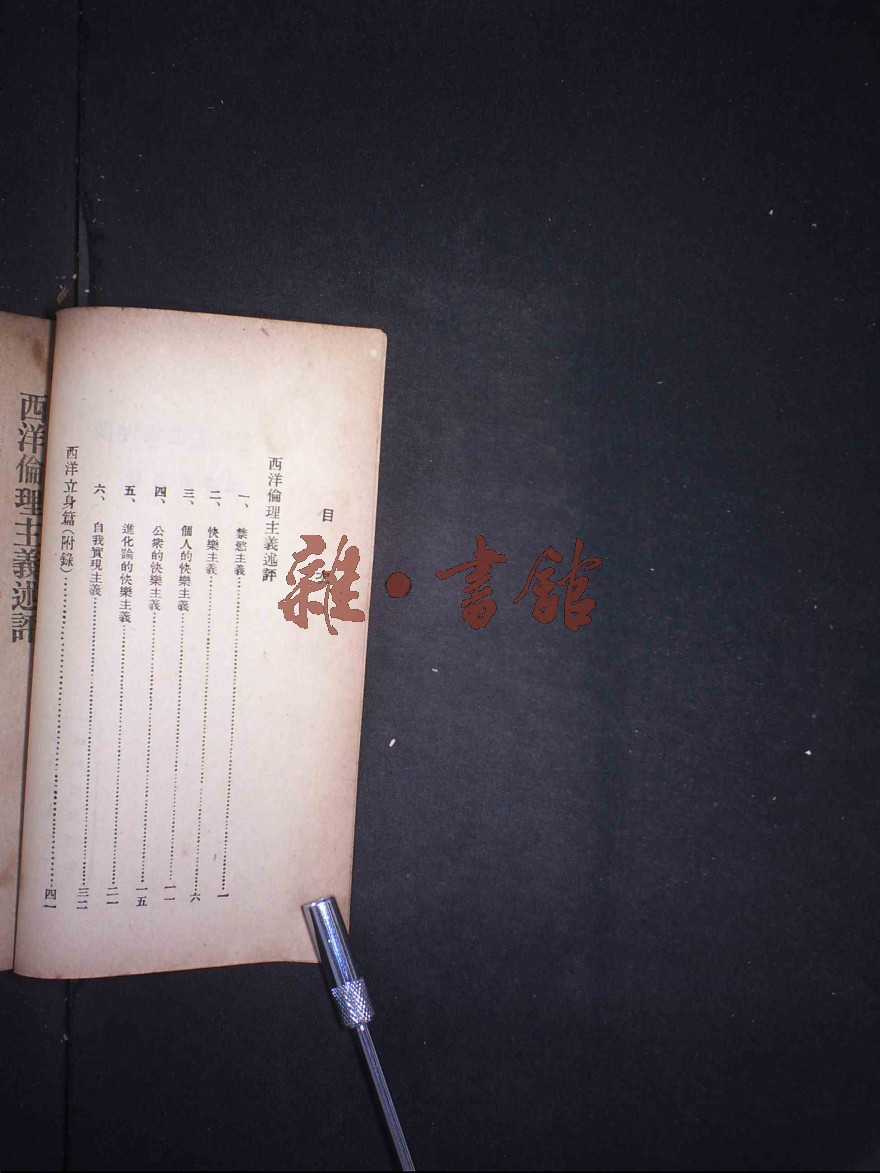 目次
西洋倫理主義述評
一、禁慾主義……一
二、快樂主義……六
三、個人的快樂主義……一一
四、公衆的快樂主義……一五
五、進化論的快樂主義……二一
六、自我實現主義……三二
西洋立身篇(附錄)……四一
西洋倫理主義述評
雜·書館